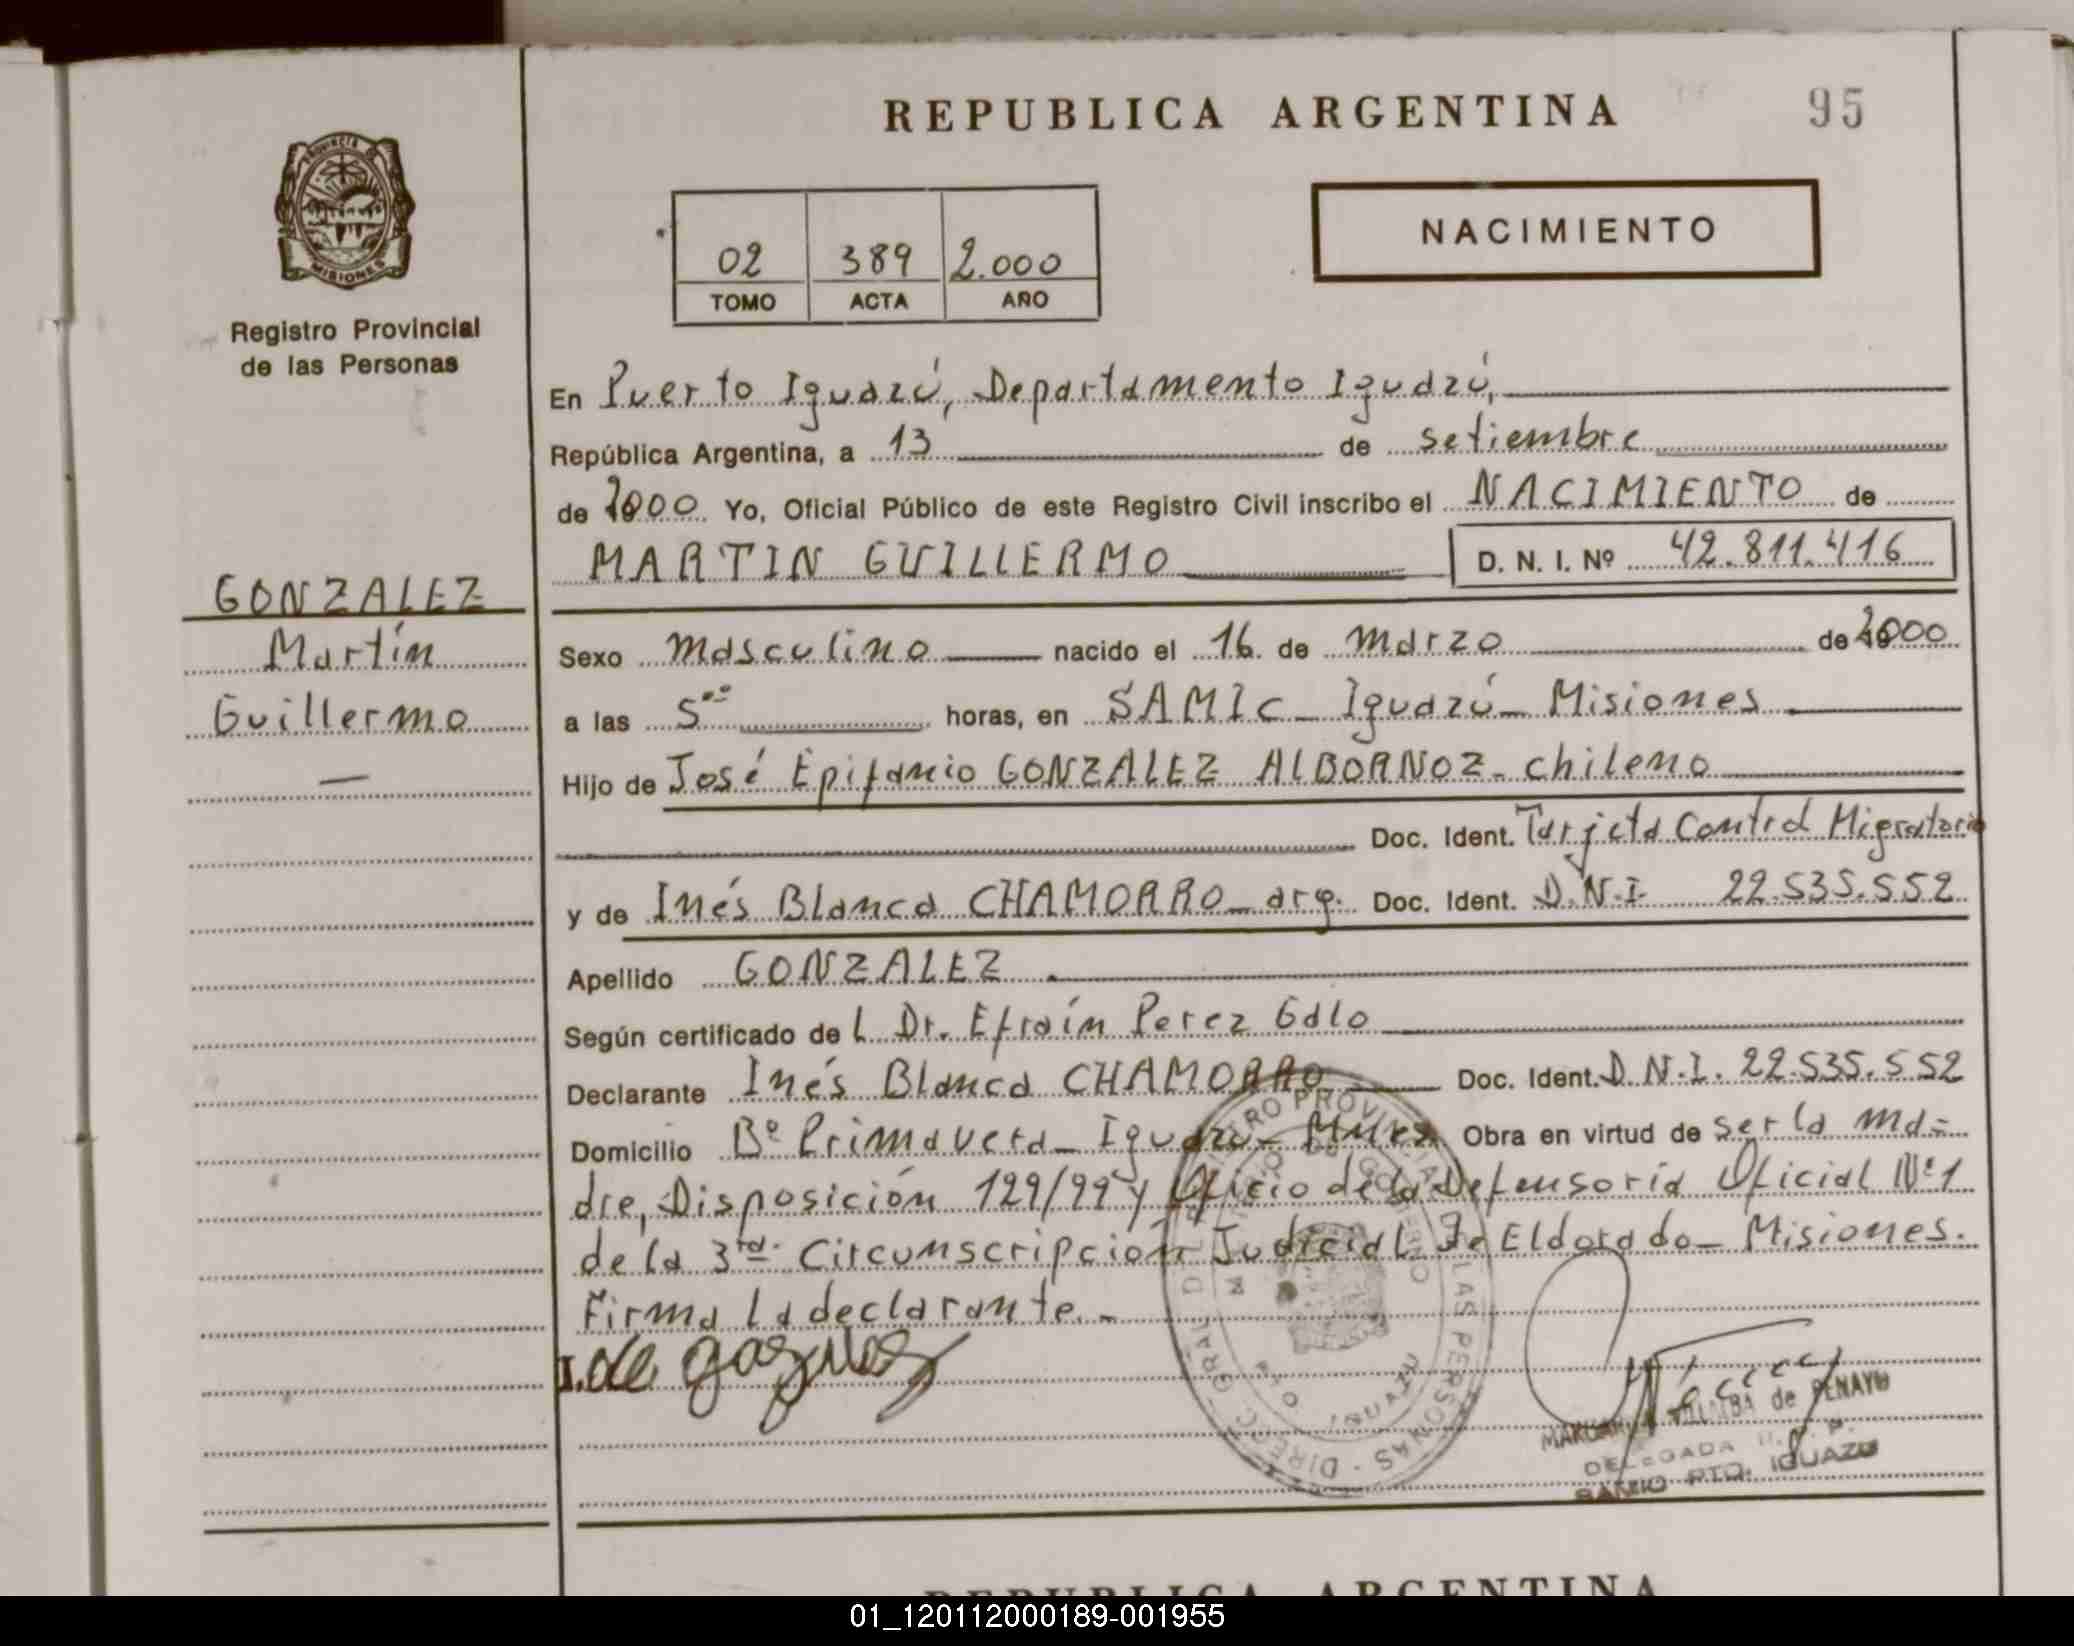 REPUBLICA ARGENTINA
95
PROVINCIA D
MISIONES
Registro Provincial
de las Personas
NACIMIENTO
02 389 2.000
TOMO ACTA AÑO
En Puerto Iguazú, Departamento Iguazú,
República Argentina, a 13 de setiembre
de 2000 Yo, Oficial Público de este Registro Civil inscribo el NACIMIENTO de
MARTIN GUILLERMO D. N. I. Nº 42.811.416
GONZALEZ
Martín
Guillermo
—
Sexo masculino nacido el 16 de marzo de 2000
a las 5⁰⁰ horas, en SAMIC - Iguazú - Misiones
Hijo de José Epifanio GONZALEZ ALBORNOZ - chileno
Doc. Ident. Tarjeta Control Migratorio
y de Inés Blanca CHAMORRO - arg. Doc. Ident. D.N.I. 22.535.552
Apellido GONZALEZ
Según certificado de l Dr. Efraín Perez Galo
Declarante Inés Blanca CHAMORRO Doc. Ident. D.N.I. 22.535.552
Domicilio Bº Primavera - Iguazú - Mnes Obra en virtud de ser la ma=
dre, Disposición 129/99 y Oficio de la Defensoría Oficial Nº 1
de la 3ra. Circunscripción Judicial de Eldorado - Misiones.
Firma la declarante. -
I. de
VILLALBA de PENAYO
DELEGADA R. P.
BARRIO PTO. IGUAZU
REGISTRO PROVINCIAL DE LAS PERSONAS - DIRECC. GRAL. DEL
MINISTERIO DE GOBIERNO
PTO. IGUAZU
REPUBLICA ARGENTINA
01_120112000189-001955